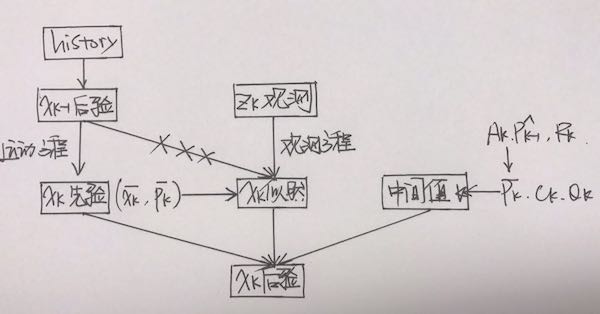 history
xk-1后验
zk观测
运动方程
××× 
观测方程
Ak.P̂k-1,Rk.
xk先验
(x̄k,P̄k)
xk似然
中间值k
P̄k.Ck.Qk
xk后验